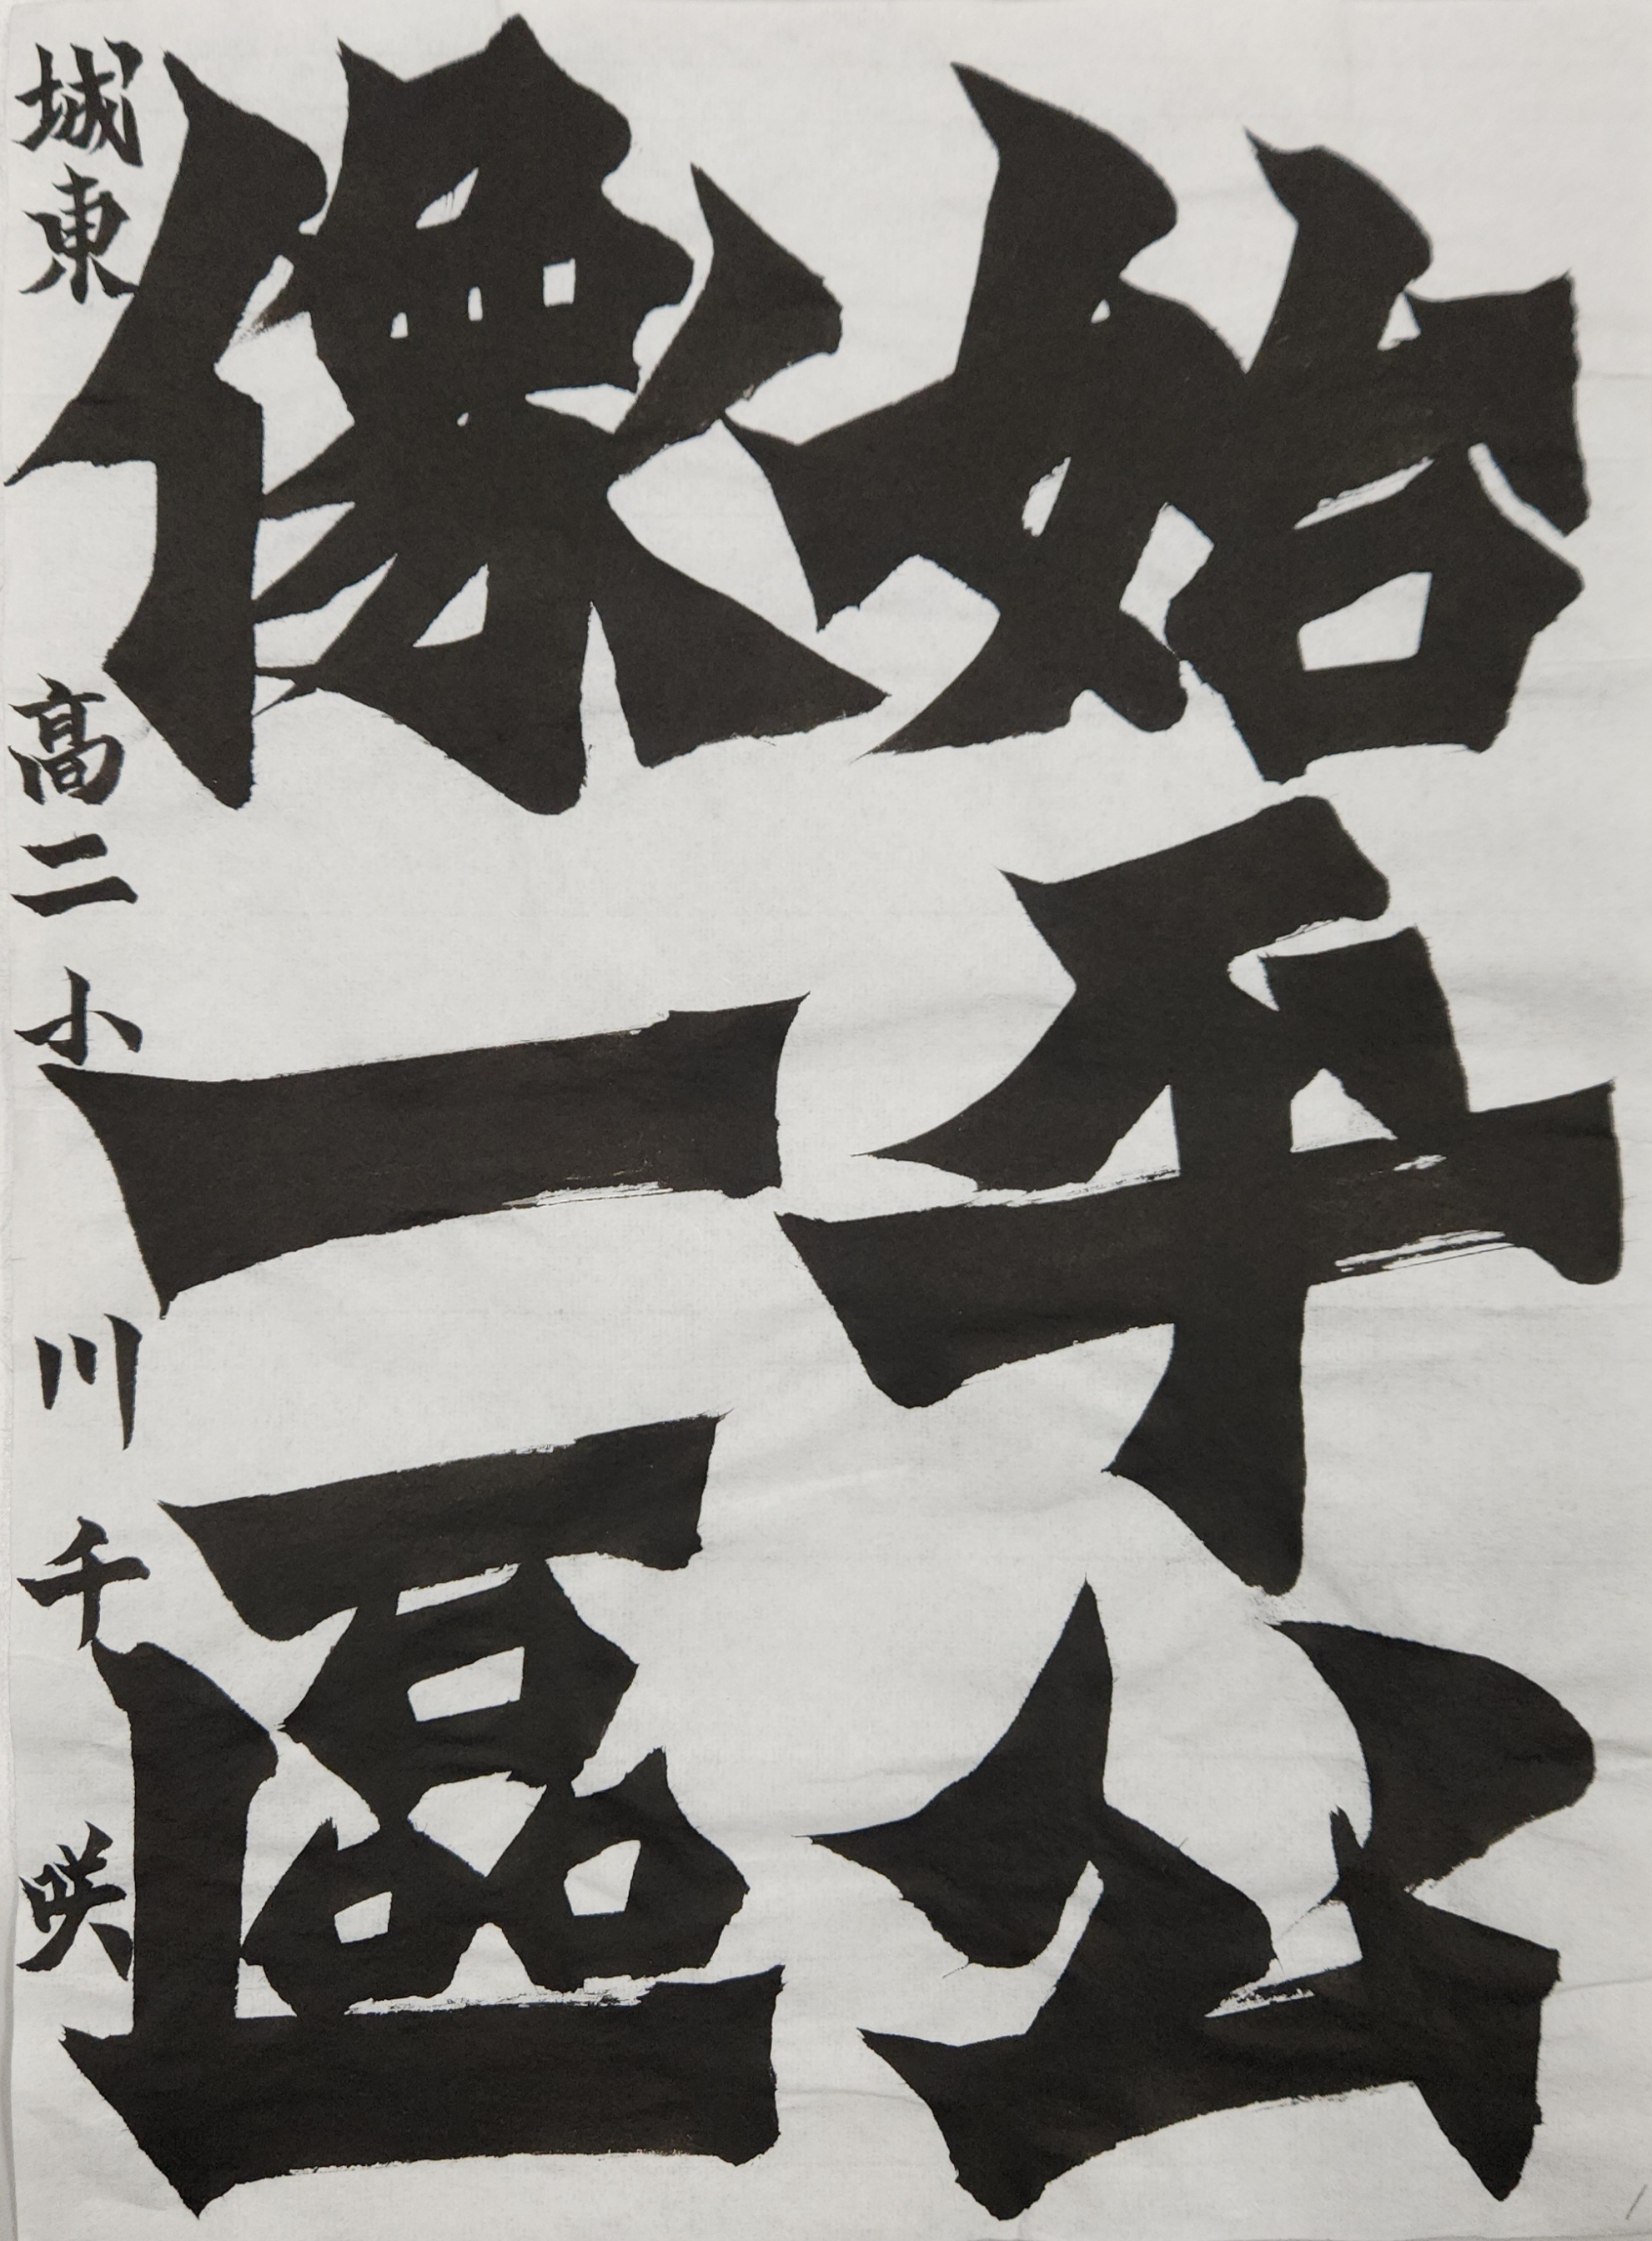 始平公
像一區
城東 高二 小川千咲